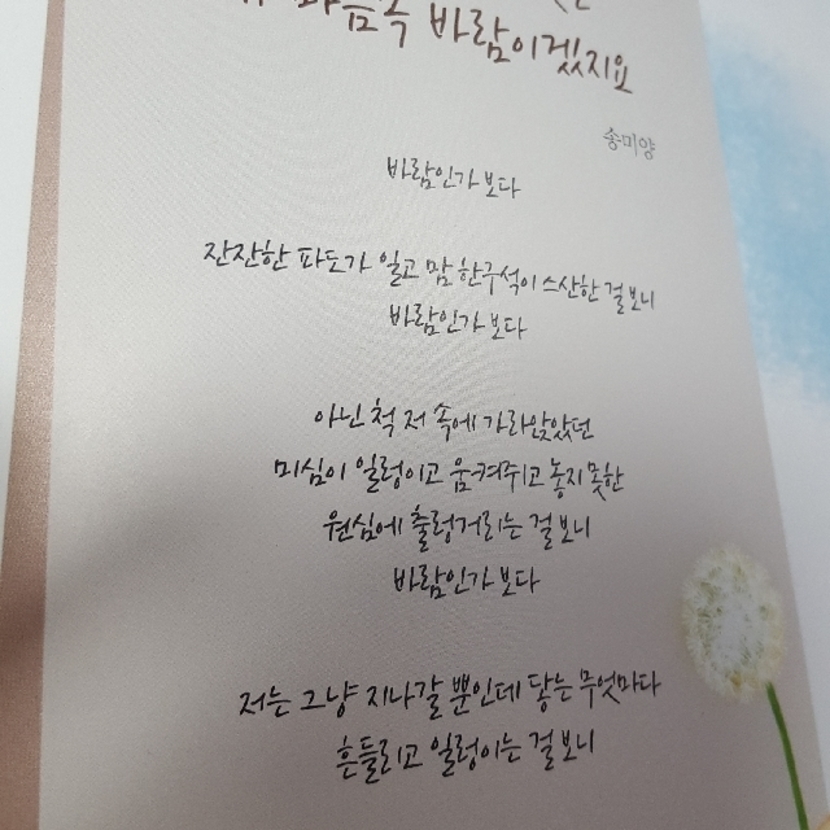 마음속 바람이겠지요
송미양
바람인가 보다
잔잔한 파도가 일고 맘 한구석이 스산한 걸 보니
바람인가 보다
아닌 척 저 속에 가라앉았던
미심이 일렁이고 움켜쥐고 놓지 못한
원심에 출렁거리는 걸 보니
바람인가 보다
저는 그냥 지나갈 뿐인데 닿는 무엇마다
흔들리고 일렁이는 걸 보니